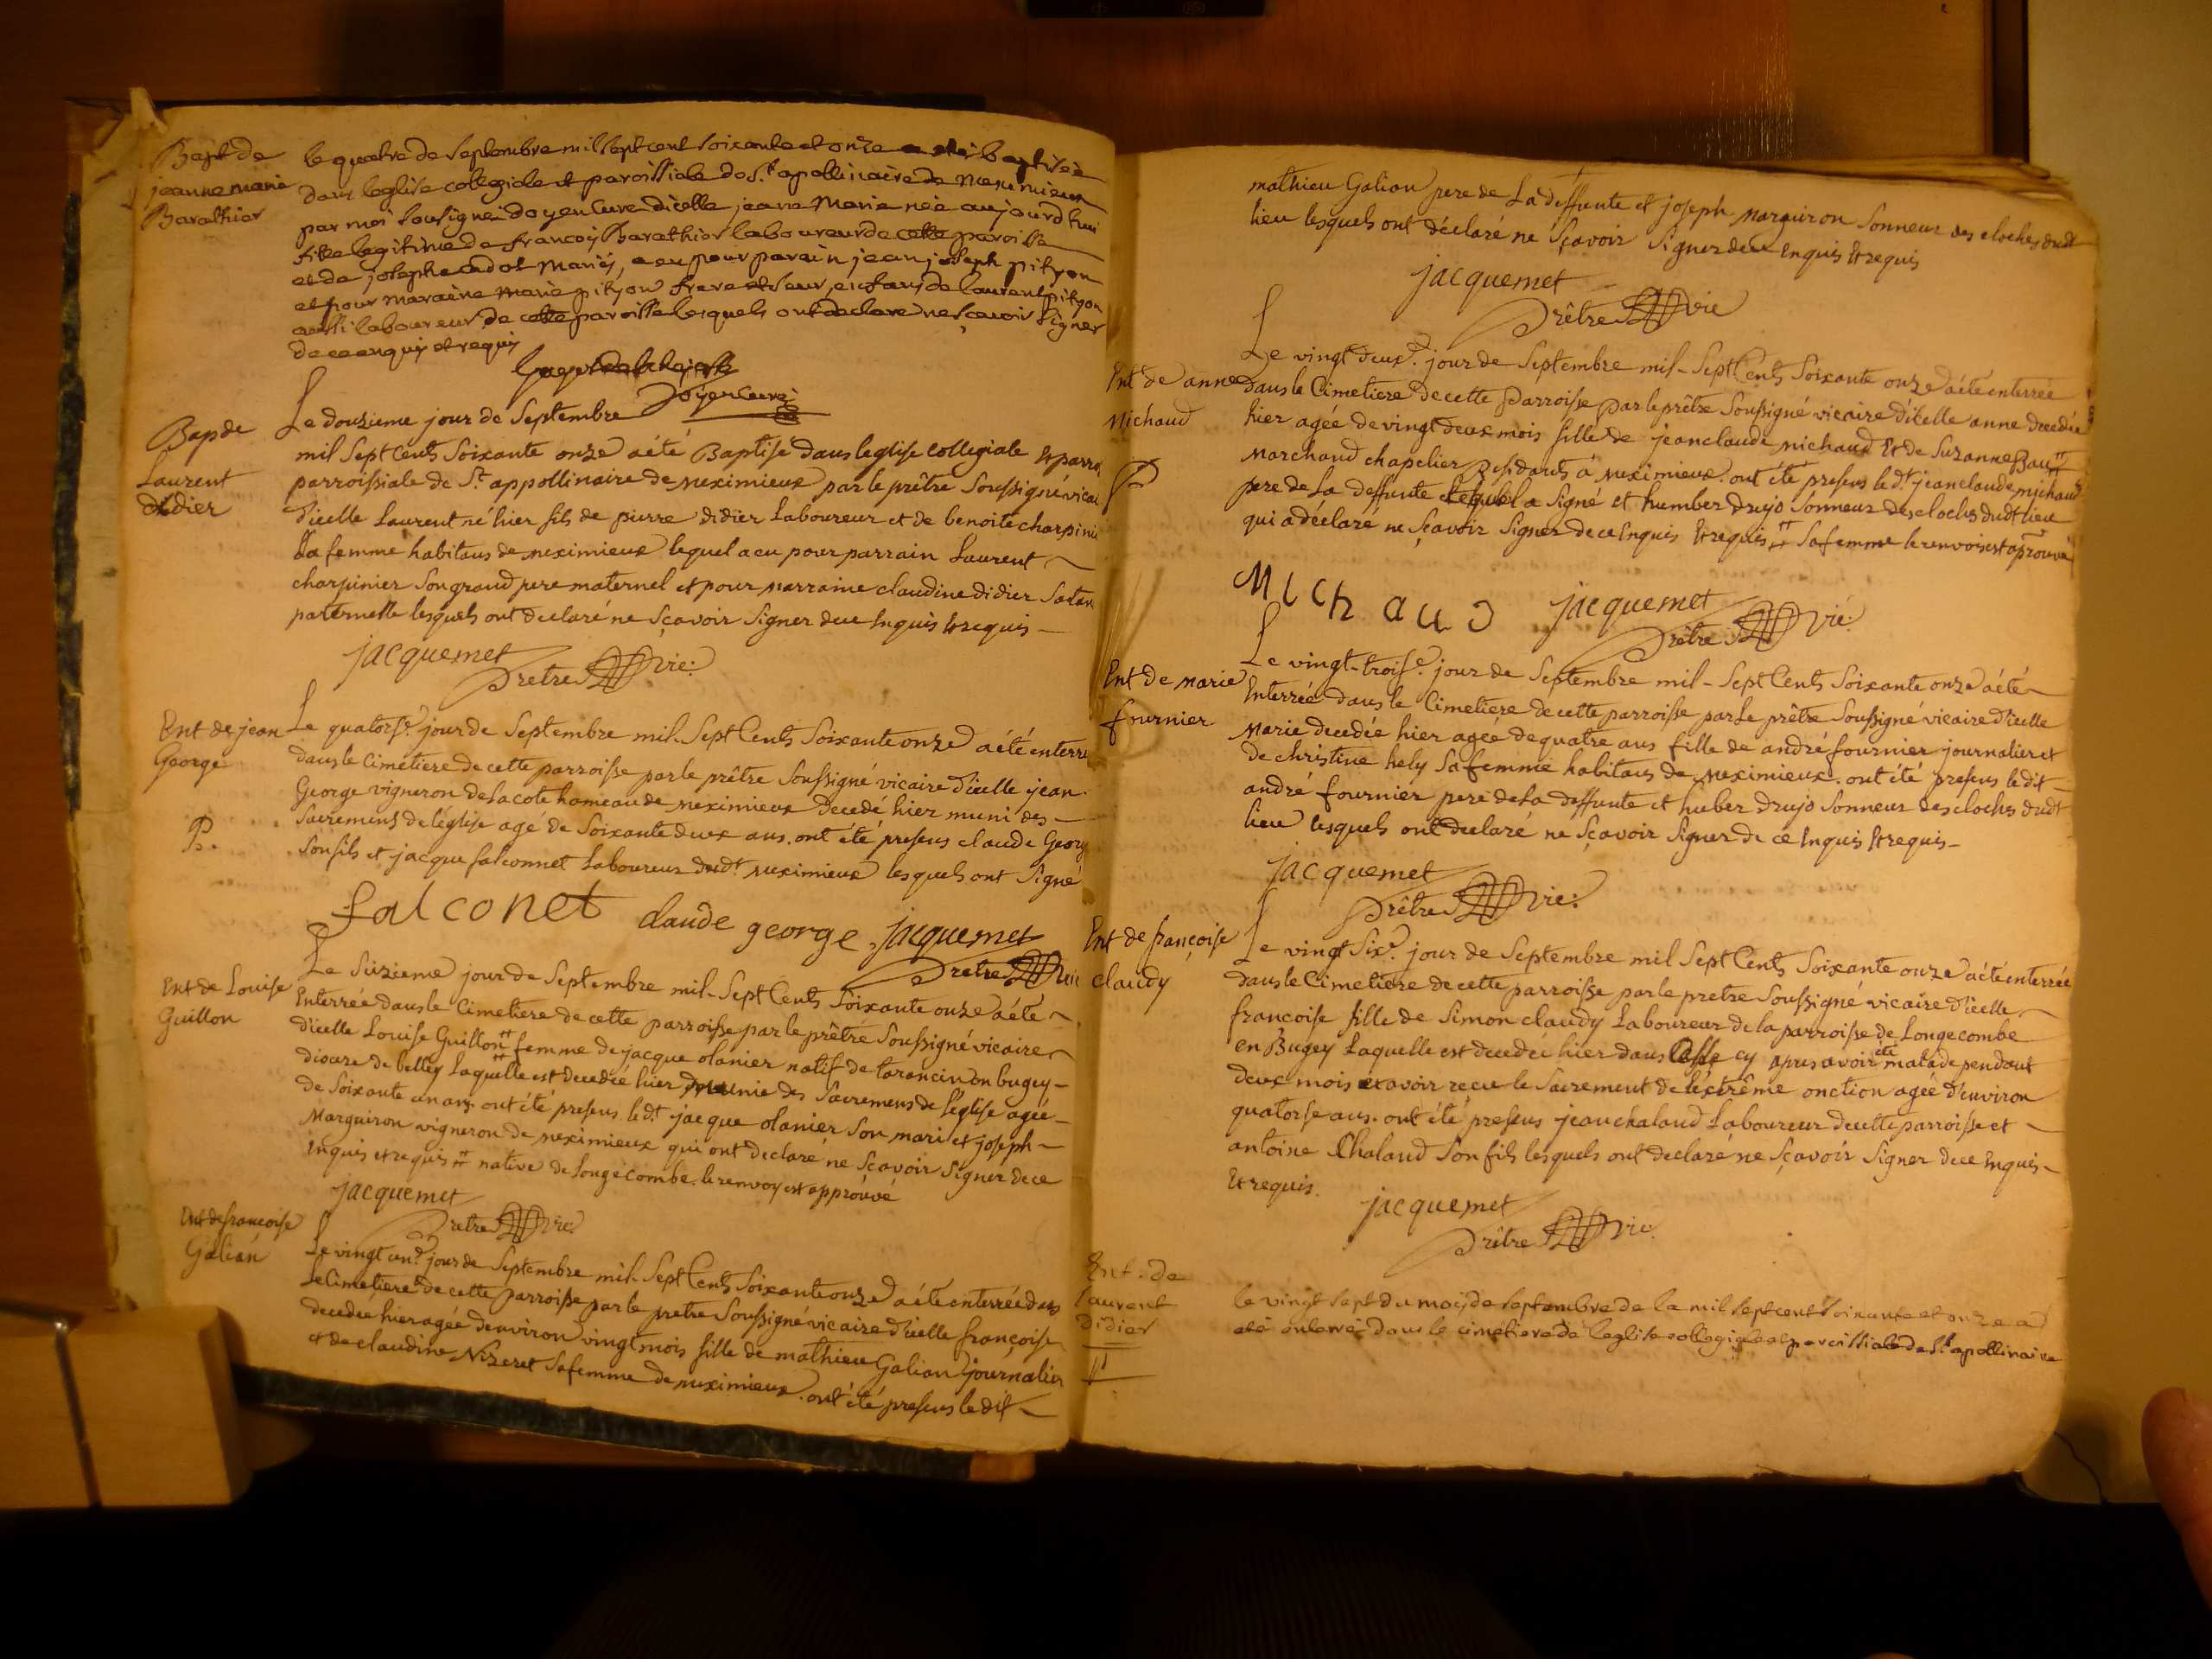 Bapt de
jeanne marie
Barathier
le quatre de septembre mil sept cent soixante et onze a etéi baptiséé
dans leglise collegiale et paroissiale de St apollinaire de meximieux
par moi soussigné doyen curé dicelle jeanne Marie néé aujourd hui
fille legitime de francoij Barathier laboureur de cette paroisse
et de josephe cadot Mariéj, a eu pour parain jean joseph pityon
et pour maraine Marie pityon frere et seur, enfans de laurent pityon
aussi laboureur de cette paroisse lesquels ont declaré ne sçavoir signer
de ce enquis et requis
Doyen curé
Bap de
Laurent
didier
Le douzieme jour de Septembre
mil Sept Cents Soixante onze aété Baptisé dans leglise collegiale et parro
parroissiale de St appollinaire de meximieux par le prêtre Soussigné vicai
d'icelle Laurent né hier fils de pierre didier Laboureur et de benoite charpinie
Sa femme habitans de meximieux lequel a eu pour parrain Laurent
charpinier Son grand pere maternel et pour marraine claudine didier Sa tan
paternelle lesquels ont declaré ne Sçavoir Signer de ce Enquis Et requis
jacquemet
Prêtre vic:
Ent de jean
George
P.
Le quatorse jour de Septembre mil Sept Cents Soixante onze aété enterré
dans le Cimetiere de cette parroisse par le prêtre Soussigné vicaire d'icelle jean
George vigneron de La cote hameau de meximieux decedé hier muni des
Sacremens de l'église agé de Soixante deux ans. ont été presens claude Georg
Son fils et jacque falconnet Laboureur dudt meximieux lesquels ont Signé
falconet claude george jacquemet
Prêtre vic
Ent de Louise
Guillon
Le Sizieme jour de Septembre mil Sept Cents Soixante onze aété
Enterrée dans le Cimetiere de cette parroisse par le prêtre Soussigné vicaire
d'icelle Louise Guillon femme de jacque olanier natif de tarancin en bugey
diocese de belley Laquelle est decedée hier munie des Sacremens de l'église agée
de Soixante un ans. ont été presens le dt jacque olanier Son mari et joseph
Marguiron vigneron de meximieux qui ont declaré ne Sçavoir Signer de ce
Enquis et requis native de Longecombe. le renvoy est approuvé
jacquemet
Prêtre vic:
Ent de francoise
Galian
Le vingt une jour de Septembre mil Sept Cents Soixante onze aété enterrée dans
Le Cimetiere de cette parroisse par le pretre Soussigné vicaire d'icelle françoise
decedée hier agée denviron vingt mois fille de mathieu Galian journalier
et de claudine Nizeret Sa femme de meximieux. ont été presens le dit
mathieu Galian pere de La deffunte et joseph marguiron Sonneur des cloches dudt
lieu lesquels ont déclaré ne Sçavoir Signer de ce Enquis Et requis
jacquemet
Prêtre vic
Ent de anne
Michaud
P
Le vingt deux.e jour de Septembre mil Sept Cents Soixante onze aété enterrée
dans le Cimetiere de cette Parroisse Par le prêtre Soussigné vicaire d'icelle anne decedée
hier agée de vingt deux mois fille de jean claude michaud Et de Suzanne Bau
Marchand chapelier Residants á meximieux. ont été presens le dt jean claude michaud
pere de La deffunte Lequel a Signé et humber drujo Sonneur des cloches dudt lieu
qui a déclaré ne Sçavoir Signer de ce Enquis Et requis Sa femme le renvois est aprouvé
Michaud jacquemet
Prêtre vic:
Ent de marie
fournier
Le vingt-trois.e jour de Septembre mil Sept Cents Soixante onze aété
Enterrée dans le Cimetiere de cette parroisse par Le prêtre Soussigné vicaire d'icelle
Marie decedée hier agée de quatre ans fille de andré fournier journalier et
de christine hely Sa femme habitans de meximieux. ont été presens le dit
andré fournier pere de La deffunte et huber drujo Sonneur des cloches dudt
lieu lesquels ont declaré ne Sçavoir Signer de ce Enquis Et requis
jacquemet
Prêtre vic:
Ent de françoise
claudy
Le vingt Six.e jour de Septembre mil Sept Cents Soixante onze aété enterrée
dans le Cimetiere de cette parroisse par le pretre Soussigné vicaire d'icelle
francoise fille de Simon claudy Laboureur de la parroisse de Longecombe
en Bugey Laquelle est decedée hier dans cy apres avoir été malade pendant
deux mois et avoir recu le Sacrement de l'extrême onction agée d'environ
quatorse ans. ont été presens jean chaland Laboureur de cette parroisse et
antoine Chaland Son fils lesquels ont declaré ne Sçavoir Signer de ce Enquis
Et requis.
jacquemet
Prêtre vic.
Ent. de
laurent
didier
le vingt sept du moij de septembre de la mil sept cent soixante et onze a
eté enterré dans le cimetiere de leglise collegiale et paroissiale de St apollinaire